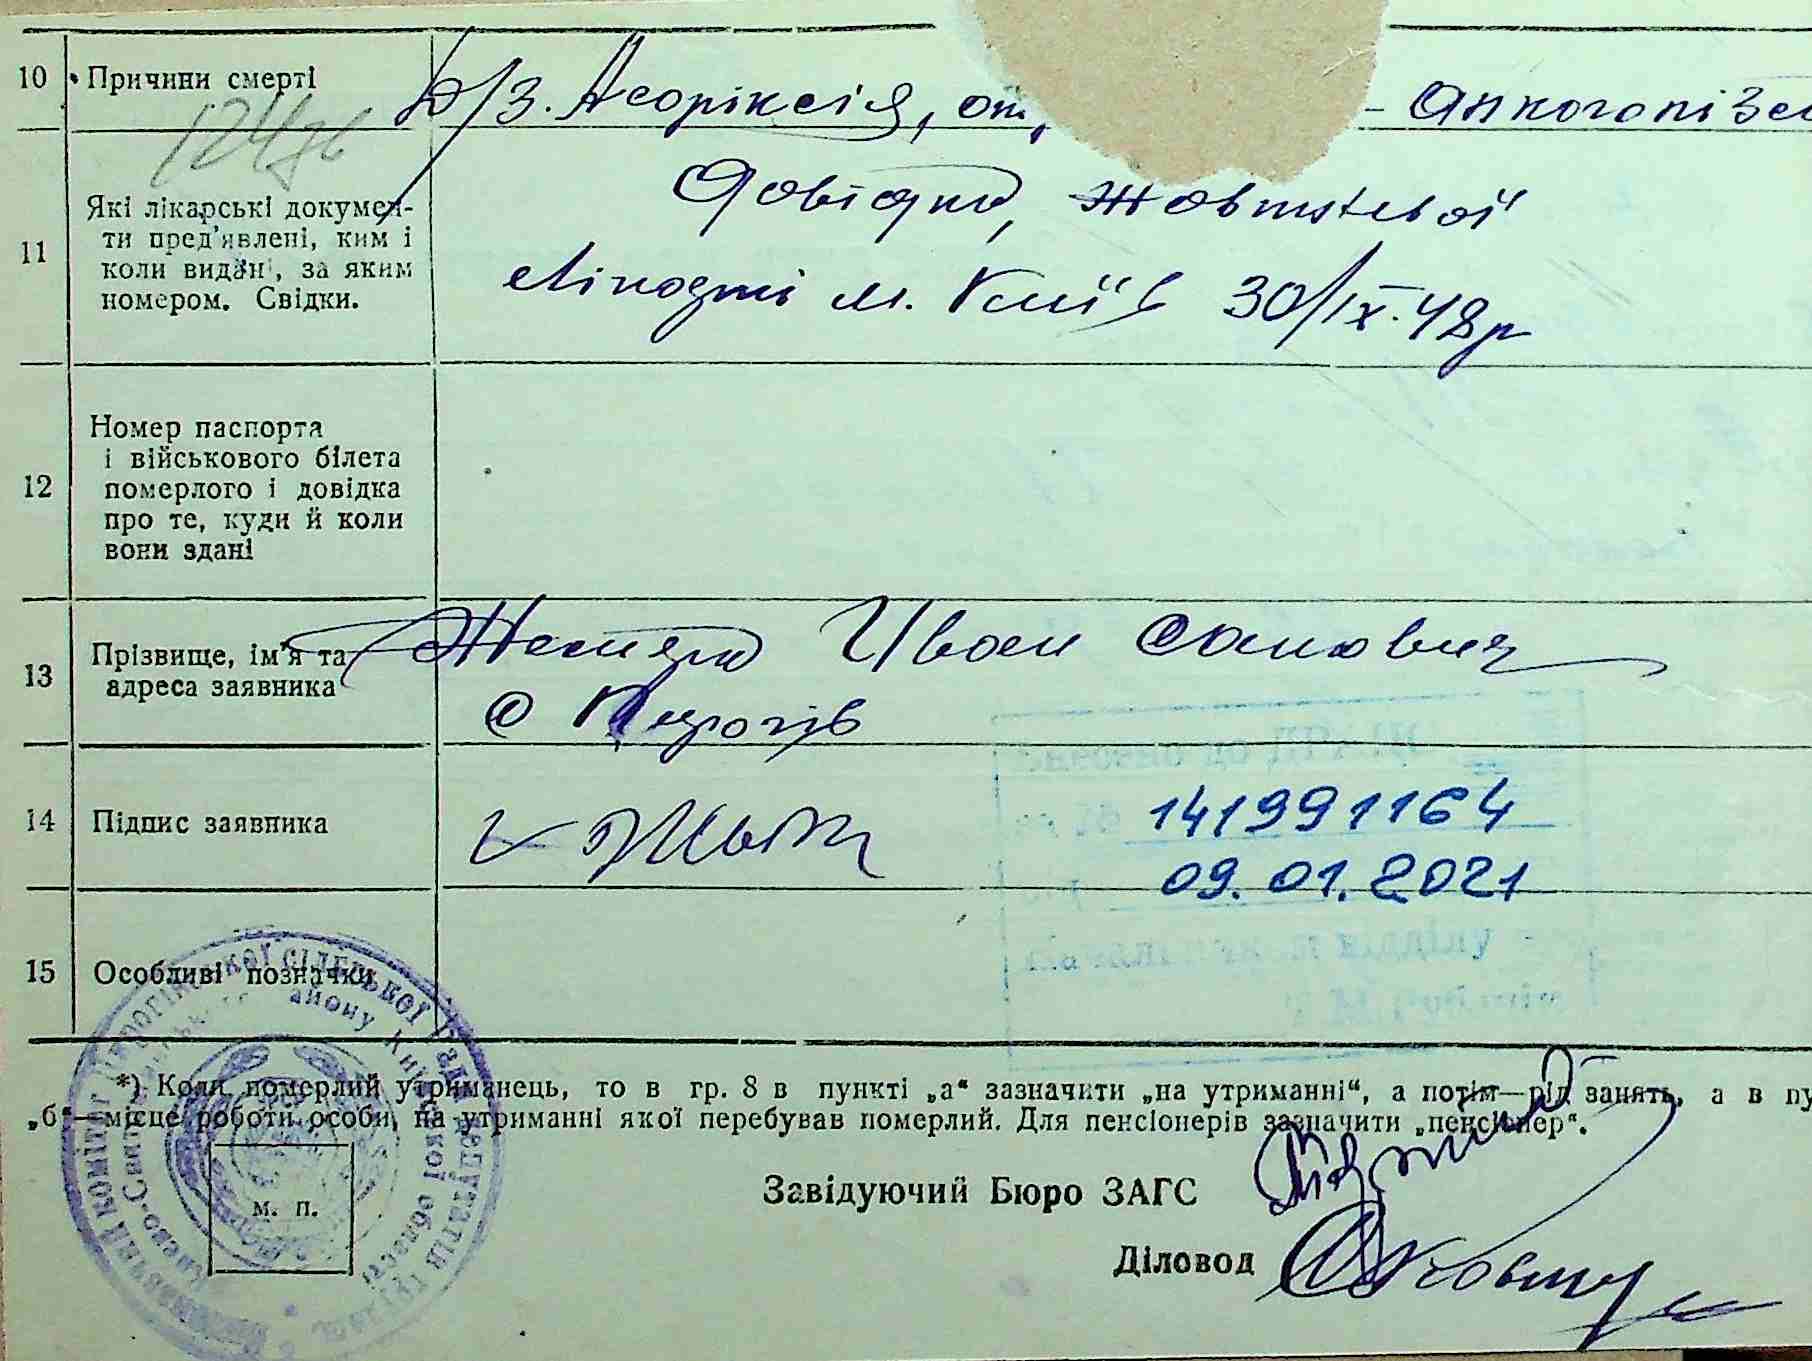 10 Причини смерті
Д/З. Асфіксія, от, — алкоголізм
124/76
11 Які лікарські докумен-
ти пред'явлені, ким і
коли видані, за яким
номером. Свідки.
Довідка, Жовтневої
Лікарні м. Київ 30/IX.48р
12 Номер паспорта
і військового білета
померлого і довідка
про те, куди й коли
вони здані
13 Прізвище, ім'я та
адреса заявника
Иван
с Пирогів
14 Підпис заявника
Внесено до ДРАЦС
за № 141991164
09.01.2021
Начальник відділу
15 Особливі позначки
*) Коли померлий утриманець, то в гр. 8 в пункті „а“ зазначити „на утриманні“, а потім—рід занять, а в пу
„б“—місце роботи особи, на утриманні якої перебував померлий. Для пенсіонерів зазначити „пенсіонер“.
Завідуючий Бюро ЗАГС
Діловод
м. п.
Виконавчий комітет Пирогівської сільської Ради депутатів трудящих
Києво-Святошинського району Київської області